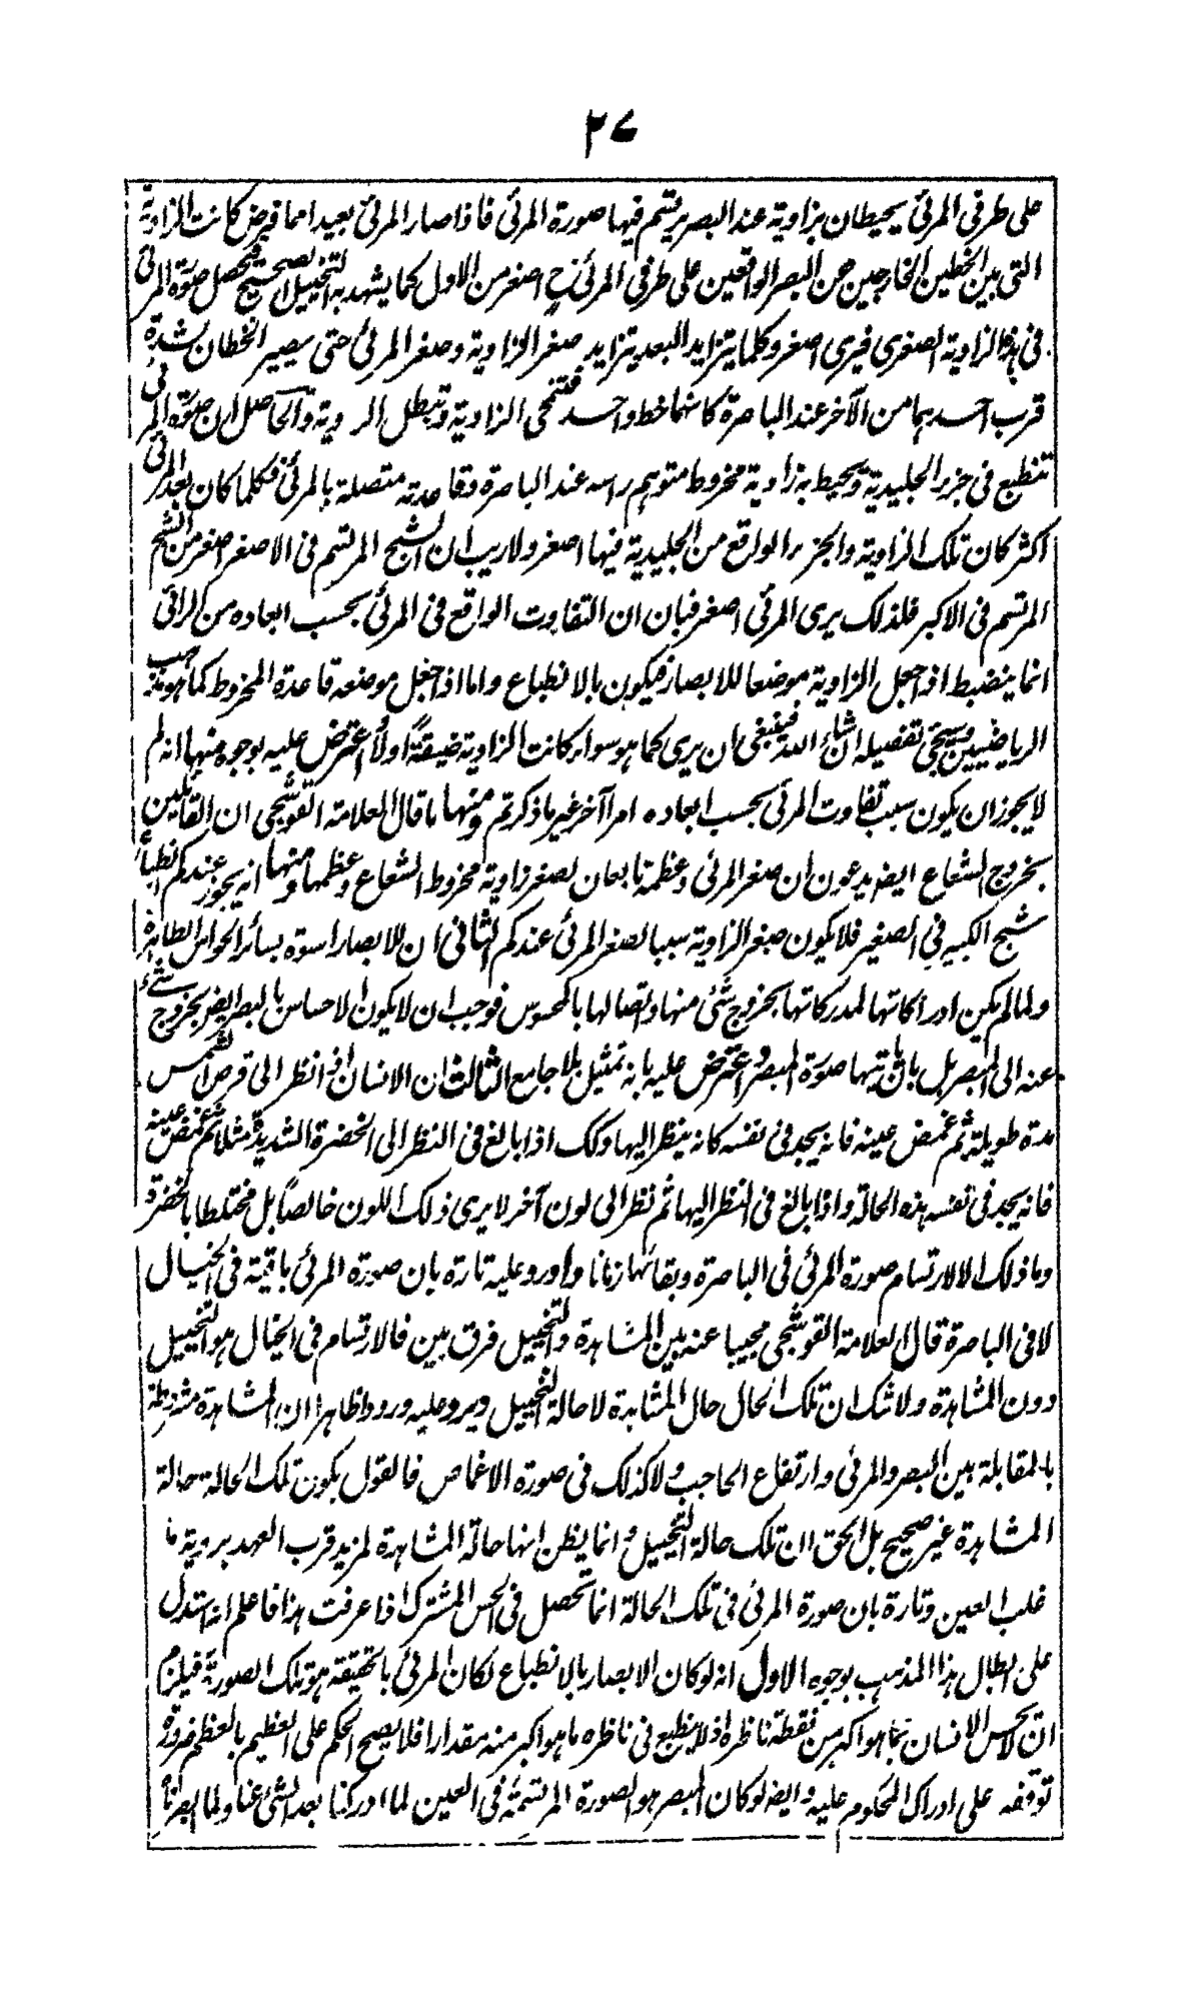 ٢٧
على طرفى المرئى يحيطان بزاوية عند البصر يرتسم فيها صورة المرئى فاذا صار المرئى بعيدا مما فرض كانت الزاوية
التى بين الخطين الخارجين من البصر الواقعين على طرفى المرئى ح اصغر من الاول كما يشهد به التخييل الصحيح فتحصل صورة المرئى
فى هذه الزاوية الصغرى فيرى اصغر وكلما يتزايد البعد يتزايد صغر الزاوية وصغر المرئى حتى يصير الخطان لشدة
قرب احدهما من الآخر عند الباصرة كانهما خط واحد فتنمحى الزاوية وتبطل الروية والحاصل ان صورة المرئى
تنطبع فى جزء الجليدية ويحيط به زاوية مخروط متوهم راسه عند الباصرة وقاعدته متصلة بالمرئى فكلما كان بعد المرئى
اكثر كان تلك الزاوية والجزء الواقع من الجليدية فيها اصغر ولا ريب ان الشبح المرتسم فى الاصغر اصغر من الشبح
المرتسم فى الاكبر فلذلك يرى المرئى اصغر فبان ان التفاوت الواقع فى المرئى بحسب ابعاده من الرائى
انما ينضبط اذا جعل الزاوية موضعا للابصار فيكون بالانطباع واما اذا جعل موضعه قاعدة المخروط كما هو مذهب
الرياضيين وسيجئ تفصيله ان شاء الله فينبغى ان يرى كما هو سواء كانت الزاوية ضيقة اولا واعترض عليه بوجوه منها انه لم
لا يجوز ان يكون سبب تفاوت المرئى بحسب ابعاده امرا آخر غير ما ذكرتم ومنها ما قال العلامة القوشجى ان القائلين
بخروج الشعاع ايضا يدعون ان صغر المرئى وعظمه تابعان لصغر زاوية مخروط الشعاع وعظمها ومنها انه يجوز عندكم انطباع
شبح الكبير فى الصغير فلا يكون صغر الزاوية سببا لصغر المرئى عندكم الثانى ان للابصار اسوة بسائر الحواس الظاهرة
ولما لم يكن ادراكاتها لمدركاتها بخروج شئ منها واتصالها بالمحسوس فوجب ان لا يكون الاحساس بالبصر ايضا بخروج شئ
عنه الى المبصر بل باتيانها صورة المبصر واعترض عليه بانه تمثيل بلا جامع الثالث ان الانسان اذا نظر الى قرص الشمس
مدة طويلة ثم غمض عينه فانه يجد فى نفسه كانه ينظر اليها وكك اذا بالغ فى النظر الى الخضرة الشديدة مثلا ثم غمض عينه
فانه يجد فى نفسه هذه الحالة واذا بالغ فى النظر اليها ثم نظر الى لون آخر لا يرى ذلك اللون خالصا بل مختلطا بالخضرة
وما ذلك الا لارتسام صورة المرئى فى الباصرة وبقائها زمانا واورد عليه تارة بان صورة المرئى باقية فى الخيال
لا فى الباصرة قال العلامة القوشجى مجيبا عنه بين المشاهدة والتخييل فرق بين فالارتسام فى الخيال هو التخييل
دون المشاهدة ولا شك ان تلك الحال حال المشاهدة لا حالة التخييل ويرد عليه ورودا ظاهرا ان المشاهدة مشروطة
بالمقابلة بين البصر والمرئى وارتفاع الحاجب ولا كذلك فى صورة الاغماض فالقول بكون تلك الحالة حالة
المشاهدة غير صحيح بل الحق ان تلك حالة التخييل وانما يظن انها حالة المشاهدة لمزيد قرب العهد بروية ما
غلب العين وتارة بان صورة المرئى فى تلك الحالة انما تحصل فى الحس المشترك اذا عرفت هذا فاعلم انه استدل
على ابطال هذا المذهب بوجوه الاول انه لو كان الابصار بالانطباع لكان المرئى بالحقيقة هو تلك الصورة فيلزم
ان لا يحس الانسان بما هو اكبر من نقطة ناظره اذ لا ينطبع فى ناظره ما هو اكبر منه مقدارا فلا يصح الحكم على العظيم بالعظم ضرورة
توقفه على ادراك المحكوم عليه وايضا لو كان المبصر هو الصورة المرتسمة فى العين لما ادركنا بعد الشئ عنا ولما ابصرنا